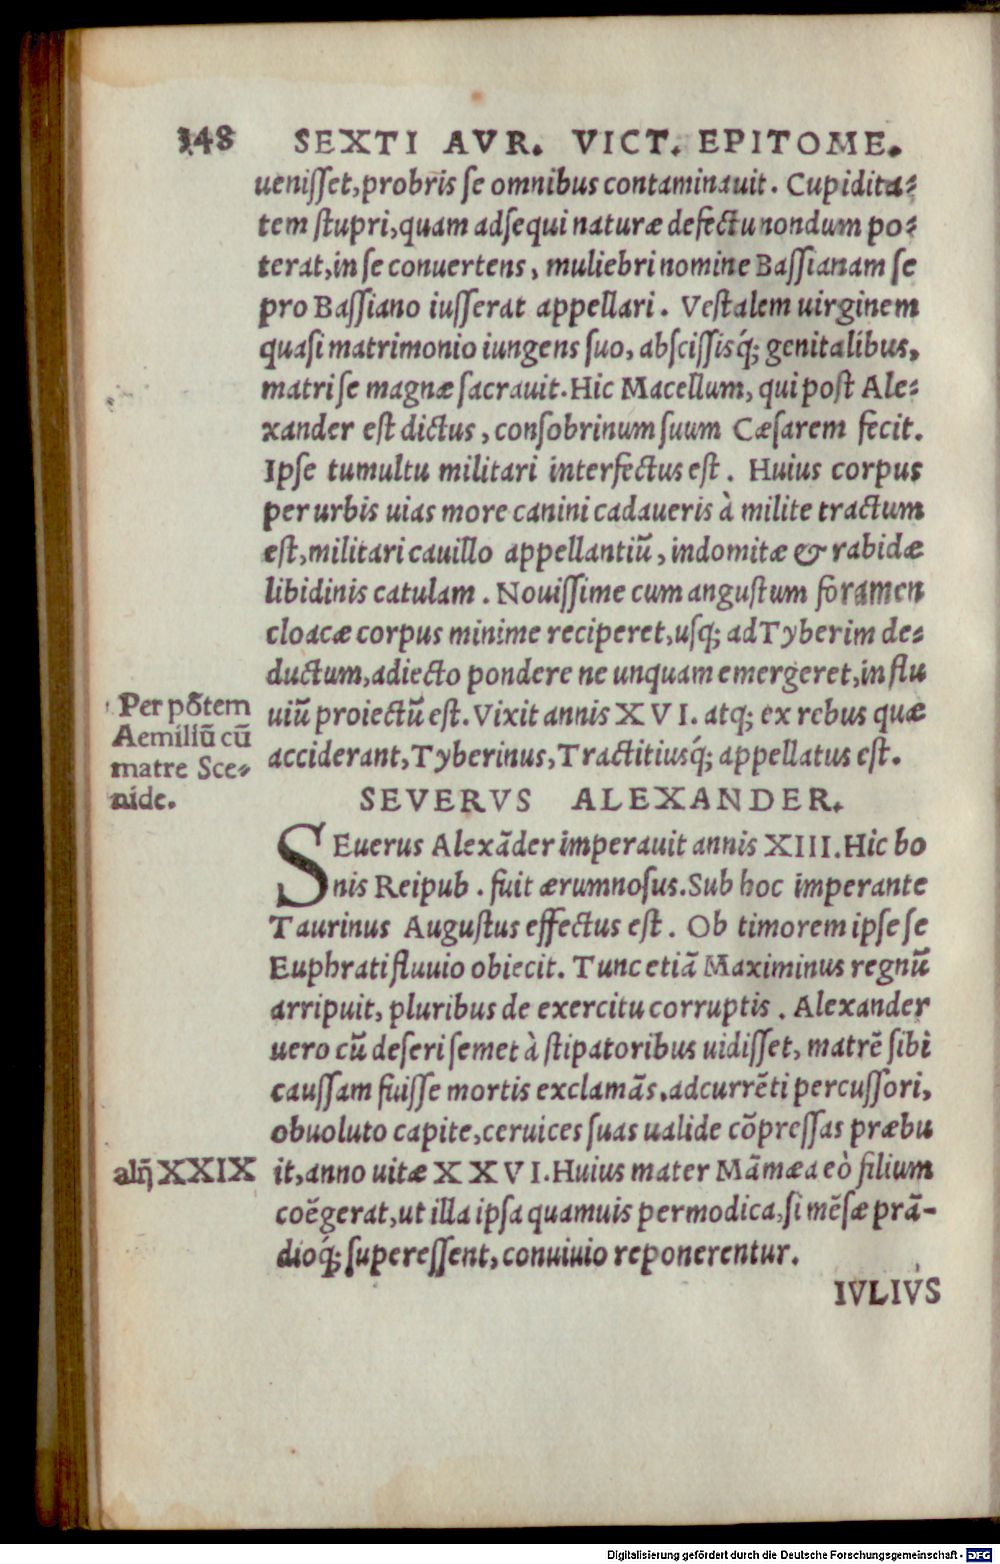 148 SEXTI AVR. VICT. EPITOME.
uenisset, probris se omnibus contaminauit. Cupidita-
tem stupri, quam adsequi naturæ defectu nondum po-
terat, in se conuertens, muliebri nomine Bassianam se
pro Bassiano iusserat appellari. Vestalem uirginem
quasi matrimonio iungens suo, abscissisq́; genitalibus,
matri se magnæ sacrauit. Hic Macellum, qui post Ale-
xander est dictus, consobrinum suum Cæsarem fecit.
Ipse tumultu militari interfectus est. Huius corpus
per urbis uias more canini cadaueris à milite tractum
est, militari cauillo appellantiū, indomitæ & rabidæ
libidinis catulam. Nouissime cum angustum foramen
cloacæ corpus minime reciperet, usq; ad Tyberim de-
ductum, adiecto pondere ne unquam emergeret, in flu
uiū proiectū est. Vixit annis XVI. atq; ex rebus quæ
acciderant, Tyberinus, Tractitiusq́; appellatus est.
Per pōtem
Aemiliū cū
matre Sce-
nide.
SEVERVS ALEXANDER.
SEuerus Alexāder imperauit annis XIII. Hic bo
nis Reipub. fuit ærumnosus. Sub hoc imperante
Taurinus Augustus effectus est. Ob timorem ipse se
Euphrati fluuio obiecit. Tunc etiā Maximinus regnū
arripuit, pluribus de exercitu corruptis. Alexander
uero cū deseri semet à stipatoribus uidisset, matrē sibi
caussam fuisse mortis exclamās, adcurrēti percussori,
obuoluto capite, ceruices suas ualide cōpressas præbu
it, anno uitæ XXVI. Huius mater Māmæa eò filium
coēgerat, ut illa ipsa quamuis permodica, si mēsæ prā-
dioq́; superessent, conuiuio reponerentur.
alij̄ XXIX
IVLIVS
Digitalisierung gefördert durch die Deutsche Forschungsgemeinschaft - DFG